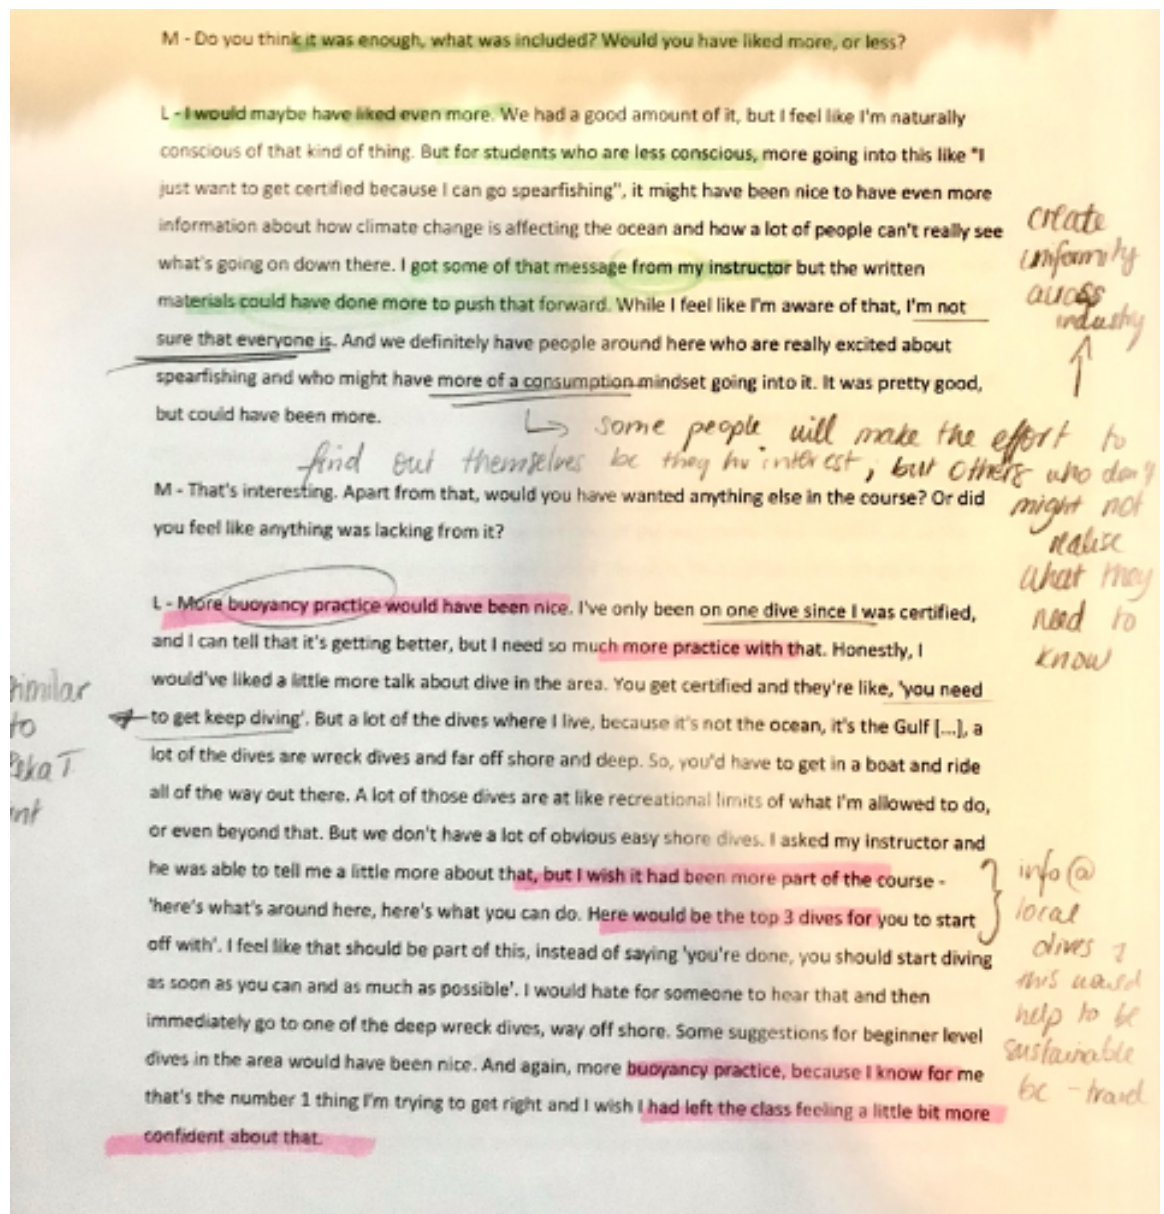 M - Do you think it was enough, what was included? Would you have liked more, or less?
L - I would maybe have liked even more. We had a good amount of it, but I feel like I'm naturally
conscious of that kind of thing. But for students who are less conscious, more going into this like "I
just want to get certified because I can go spearfishing", it might have been nice to have even more
information about how climate change is affecting the ocean and how a lot of people can't really see
what's going on down there. I got some of that message from my instructor but the written
materials could have done more to push that forward. While I feel like I'm aware of that, I'm not
sure that everyone is. And we definitely have people around here who are really excited about
spearfishing and who might have more of a consumption mindset going into it. It was pretty good,
but could have been more.
create
uniformity
across
industry
some people will make the effort to
find out themselves bc they hv interest, but others who don't
might not
realise
what they
need to
know
M - That's interesting. Apart from that, would you have wanted anything else in the course? Or did
you feel like anything was lacking from it?
L - More buoyancy practice would have been nice. I've only been on one dive since I was certified,
and I can tell that it's getting better, but I need so much more practice with that. Honestly, I
would've liked a little more talk about dive in the area. You get certified and they're like, 'you need
to get keep diving'. But a lot of the dives where I live, because it's not the ocean, it's the Gulf [...], a
lot of the dives are wreck dives and far off shore and deep. So, you'd have to get in a boat and ride
all of the way out there. A lot of those dives are at like recreational limits of what I'm allowed to do,
or even beyond that. But we don't have a lot of obvious easy shore dives. I asked my instructor and
he was able to tell me a little more about that, but I wish it had been more part of the course -
'here's what's around here, here's what you can do. Here would be the top 3 dives for you to start
off with'. I feel like that should be part of this, instead of saying 'you're done, you should start diving
as soon as you can and as much as possible'. I would hate for someone to hear that and then
immediately go to one of the deep wreck dives, way off shore. Some suggestions for beginner level
dives in the area would have been nice. And again, more buoyancy practice, because I know for me
that's the number 1 thing I'm trying to get right and I wish I had left the class feeling a little bit more
confident about that.
similar
to
T
info @
local
dives
this would
help to be
sustainable
bc - travel